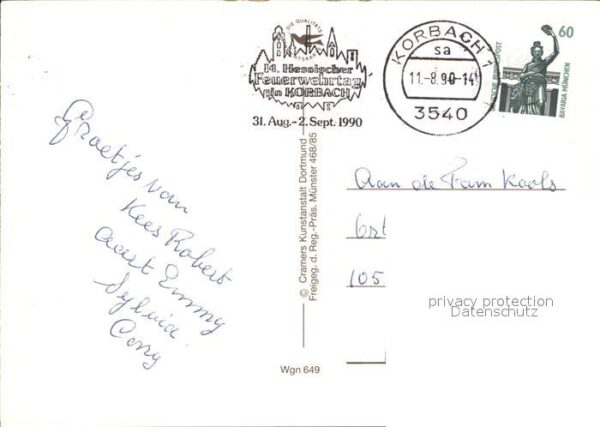 Groetjes vom
Kees Robert
Aart Emmy
Sylvia
Cony
DIE QUALITÄTS
14. Hessischer
Feuerwehrtag
in KORBACH
31. Aug.-2. Sept. 1990
KORBACH 1
sa
11.-8.90-14
3540
60
DEUTSCHE BUNDESPOST
BAVARIA MÜNCHEN
© Cramers Kunstanstalt Dortmund
Freigeg. d. Reg.-Präs. Münster 468/85
Wgn 649
Aan de Fam Kools
105
privacy protection
Datenschutz